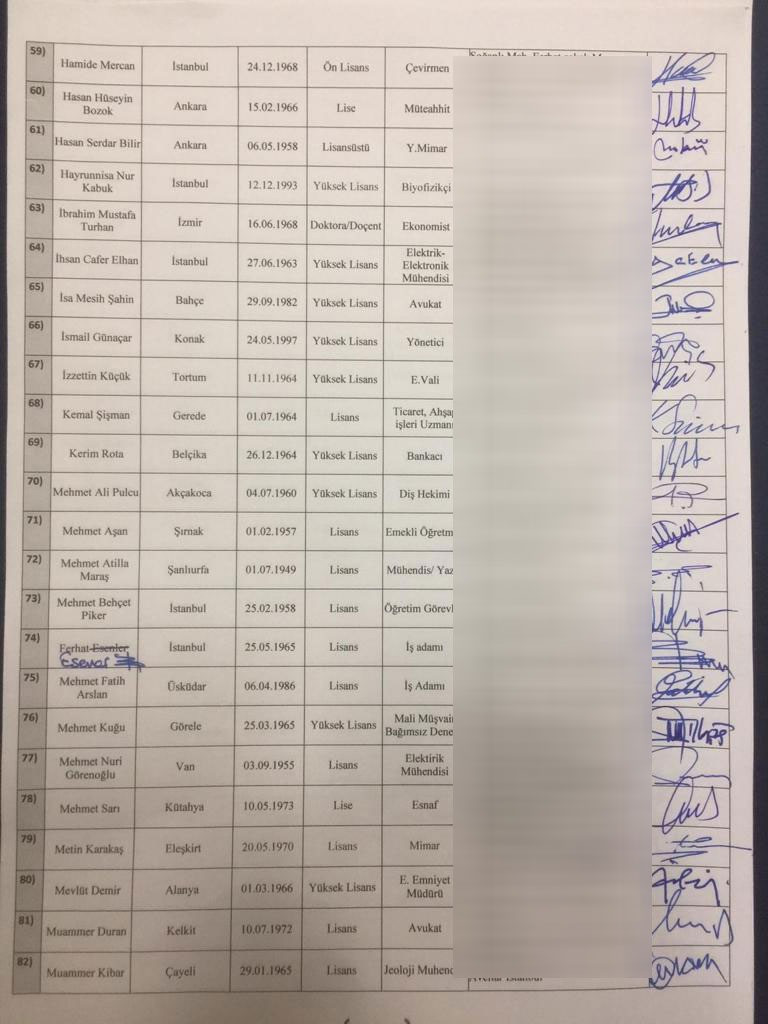 59) Hamide Mercan İstanbul 24.12.1968 Ön Lisans Çevirmen
60) Hasan Hüseyin Bozok Ankara 15.02.1966 Lise Müteahhit
61) Hasan Serdar Bilir Ankara 06.05.1958 Lisansüstü Y.Mimar
62) Hayrunnisa Nur Kabuk İstanbul 12.12.1993 Yüksek Lisans Biyofizikçi
63) İbrahim Mustafa Turhan İzmir 16.06.1968 Doktora/Doçent Ekonomist
64) İhsan Cafer Elhan İstanbul 27.06.1963 Yüksek Lisans Elektrik-Elektronik Mühendisi
65) İsa Mesih Şahin Bahçe 29.09.1982 Yüksek Lisans Avukat
66) İsmail Günaçar Konak 24.05.1997 Yüksek Lisans Yönetici
67) İzzettin Küçük Tortum 11.11.1964 Yüksek Lisans E.Vali
68) Kemal Şişman Gerede 01.07.1964 Lisans Ticaret, Ahşa işleri Uzman
69) Kerim Rota Belçika 26.12.1964 Yüksek Lisans Bankacı
70) Mehmet Ali Pulcu Akçakoca 04.07.1960 Yüksek Lisans Diş Hekimi
71) Mehmet Aşan Şırnak 01.02.1957 Lisans Emekli Öğretm
72) Mehmet Atilla Maraş Şanlıurfa 01.07.1949 Lisans Mühendis/ Yaz
73) Mehmet Behçet Piker İstanbul 25.02.1958 Lisans Öğretim Görevl
74) Ferhat Esenler Esener İstanbul 25.05.1965 Lisans İş adamı
75) Mehmet Fatih Arslan Üsküdar 06.04.1986 Lisans İş Adamı
76) Mehmet Kuğu Görele 25.03.1965 Yüksek Lisans Mali Müşvai Bağımsız Dene
77) Mehmet Nuri Görenoğlu Van 03.09.1955 Lisans Elektirik Mühendisi
78) Mehmet Sarı Kütahya 10.05.1973 Lise Esnaf
79) Metin Karakaş Eleşkirt 20.05.1970 Lisans Mimar
80) Mevlüt Demir Alanya 01.03.1966 Yüksek Lisans E. Emniyet Müdürü
81) Muammer Duran Kelkit 10.07.1972 Lisans Avukat
82) Muammer Kibar Çayeli 29.01.1965 Lisans Jeoloji Muhend